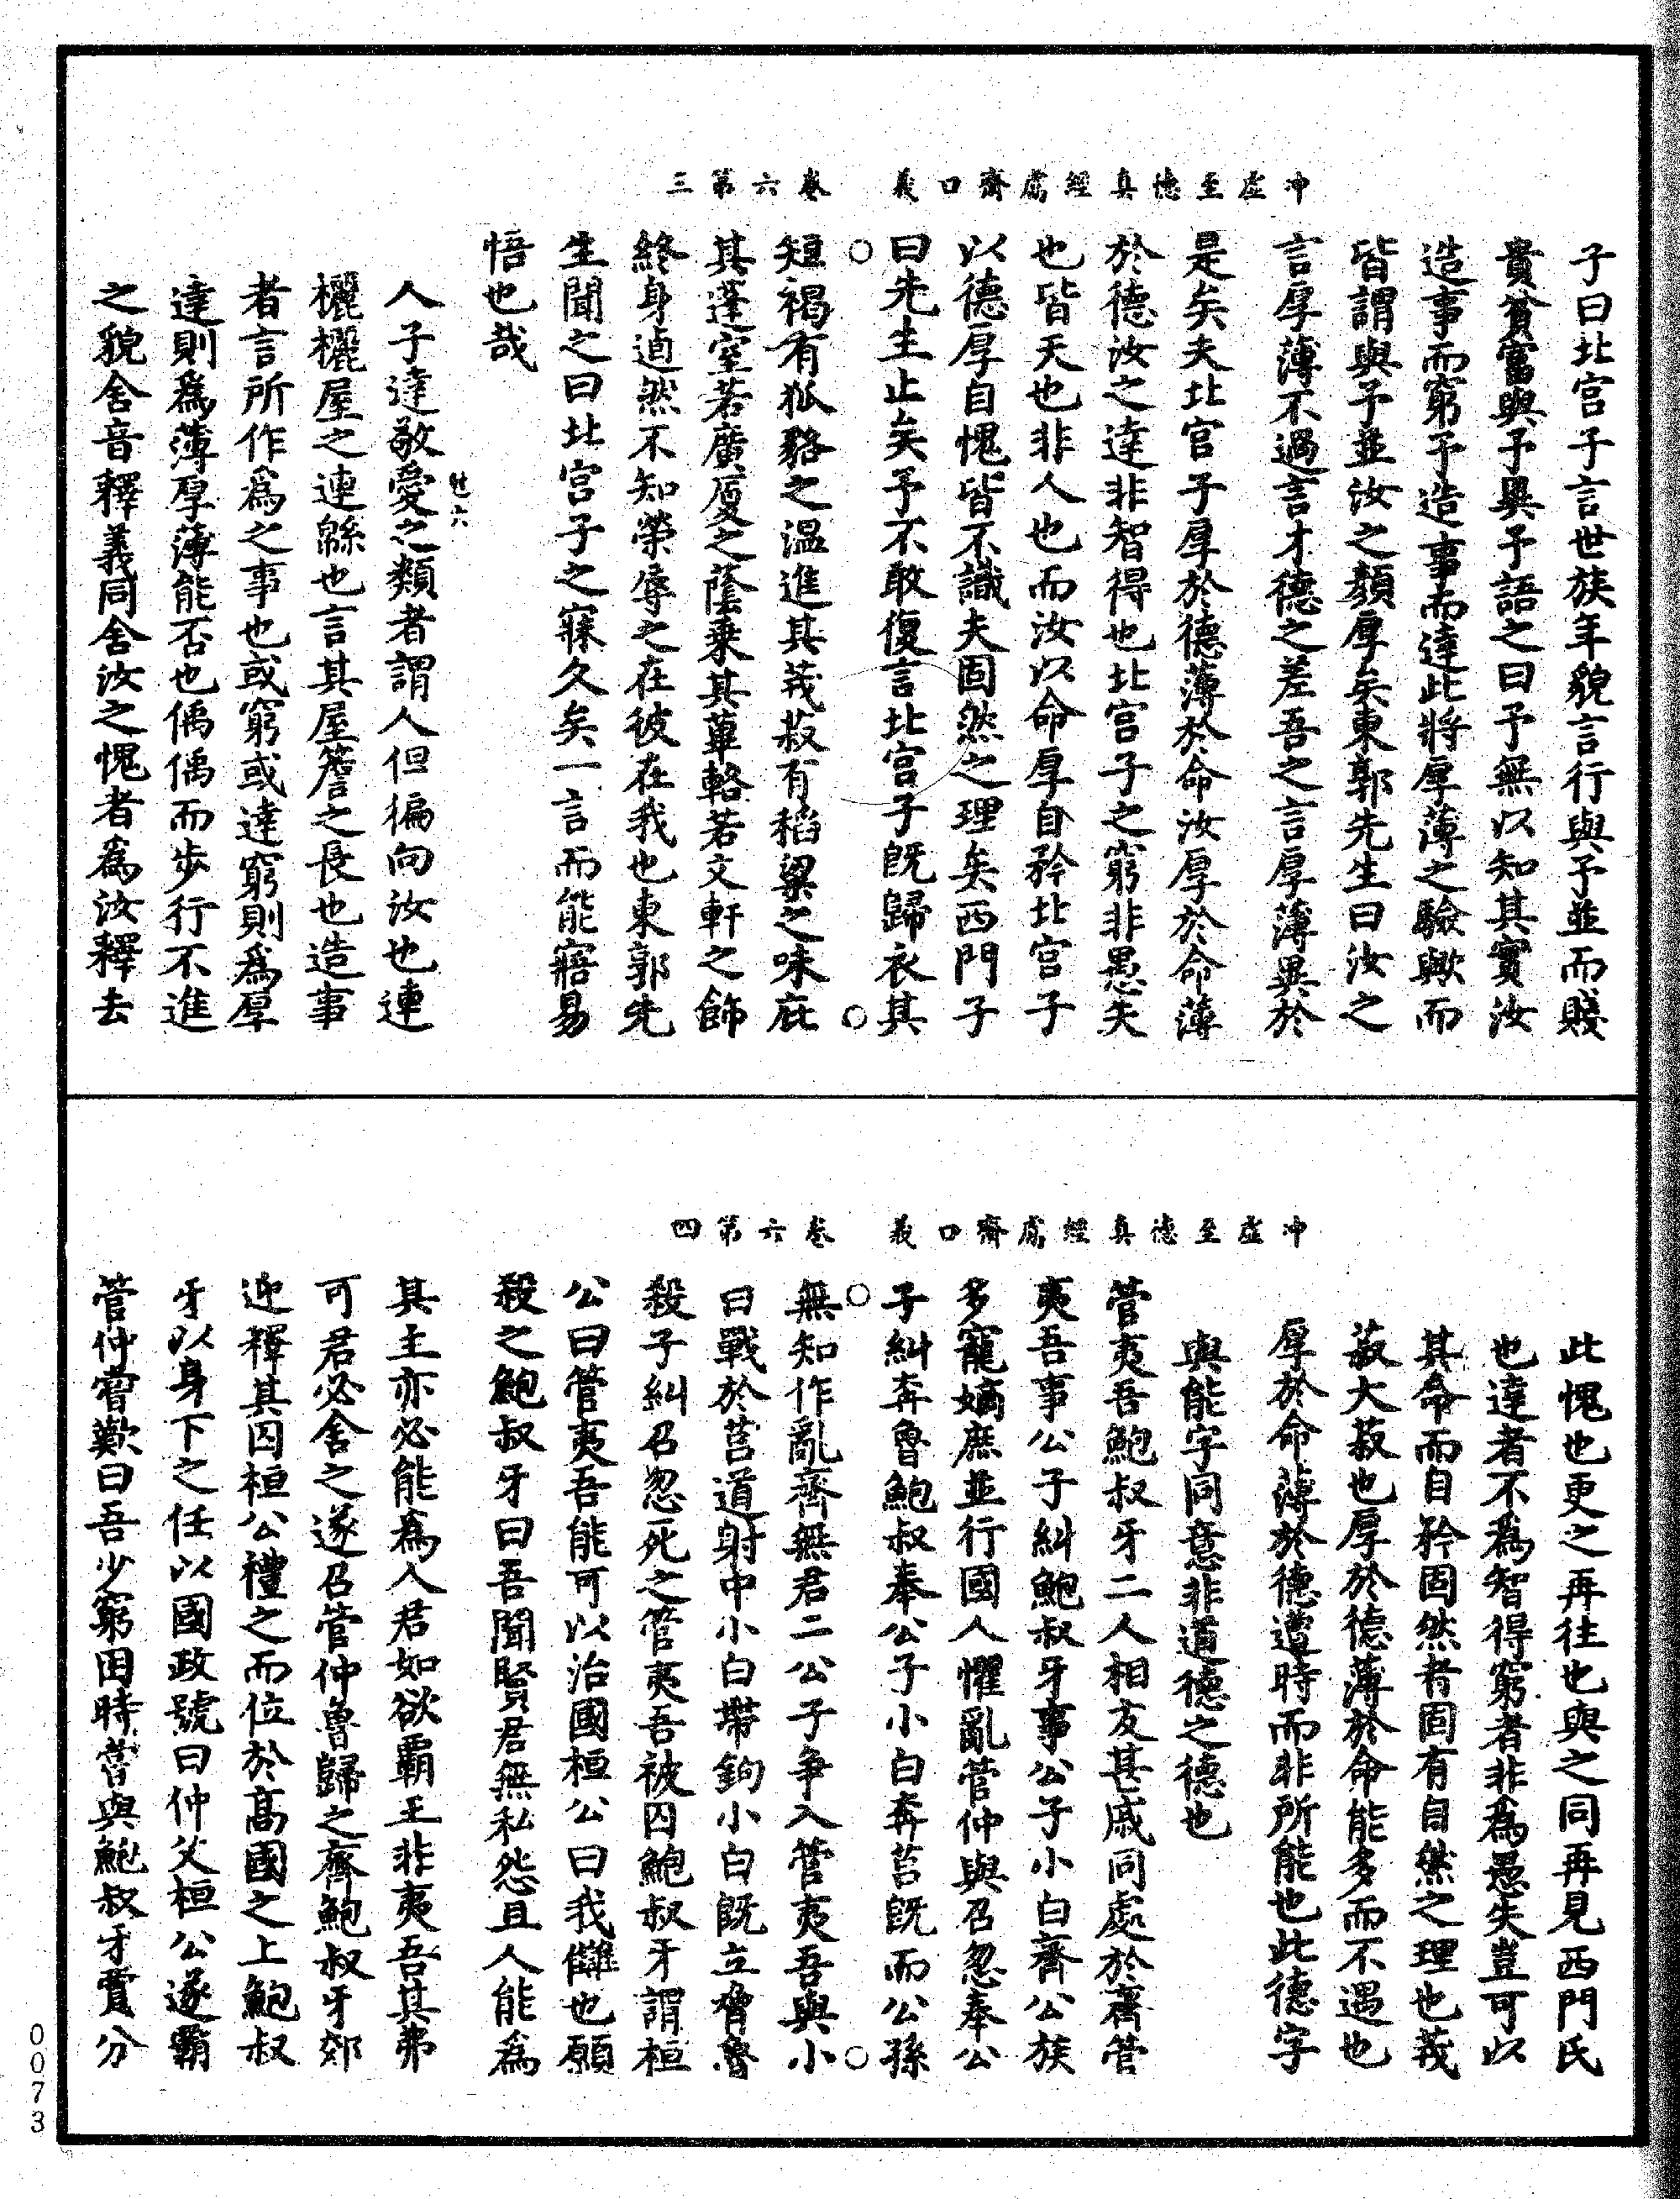 冲虛至德真經鬳齋口義　卷六第三
子曰北宮子言世族年貌言行與予並而賤
貴貧富與予異予語之曰予無以知其實汝
造事而窮予造事而達此將厚薄之驗歟而
皆謂與予並汝之顏厚矣東郭先生曰汝之
言厚薄不過言才德之差吾之言厚薄異於
是矣夫北宮子厚於德薄於命汝厚於命薄
於德汝之達非智得也北宮子之窮非愚失
也皆天也非人也而汝以命厚自矜北宮子
以德厚自愧皆不識夫固然之理矣西門子
曰先生止矣予不敢復言北宮子既歸衣其
短褐有狐貉之溫進其茙菽有稻粱之味庇
其蓬室若廣廈之蔭乘其蓽輅若文軒之飾
終身逌然不知榮辱之在彼在我也東郭先
生聞之曰北宮子之寐久矣一言而能寤易
悟也哉
人子達敬愛之類者謂人但徧向汝也連
欐欐屋之連緜也言其屋簷之長也造事
者言所作為之事也或窮或達窮則為厚
達則為薄厚薄能否也偊偊而步行不進
之貌舍音釋義同舍汝之愧者為汝釋去
冲虛至德真經鬳齋口義　卷六第四
此愧也更之再往也與之同再見西門氏
也達者不為智得窮者非為愚失豈可以
其命而自矜固然者固有自然之理也茙
菽大菽也厚於德薄於命能多而不遇也
厚於命薄於德遭時而非所能也此德字
與能字同意非道德之德也
管夷吾鮑叔牙二人相友甚戚同處於齊管
夷吾事公子糾鮑叔牙事公子小白齊公族
多寵嫡庶並行國人懼亂管仲與召忽奉公
子糾奔魯鮑叔奉公子小白奔莒既而公孫
無知作亂齊無君二公子爭入管夷吾與小
白戰於莒道射中小白帶鉤小白既立脅魯
殺子糾召忽死之管夷吾被囚鮑叔牙謂桓
公曰管夷吾能可以治國桓公曰我讎也願
殺之鮑叔牙曰吾聞賢君無私怨且人能為
其主亦必能為人君如欲霸王非夷吾其弗
可君必舍之遂召管仲魯歸之齊鮑叔牙郊
迎釋其囚桓公禮之而位於高國之上鮑叔
牙以身下之任以國政號曰仲父桓公遂霸
管仲嘗歎曰吾少窮困時嘗與鮑叔牙賈分
0073